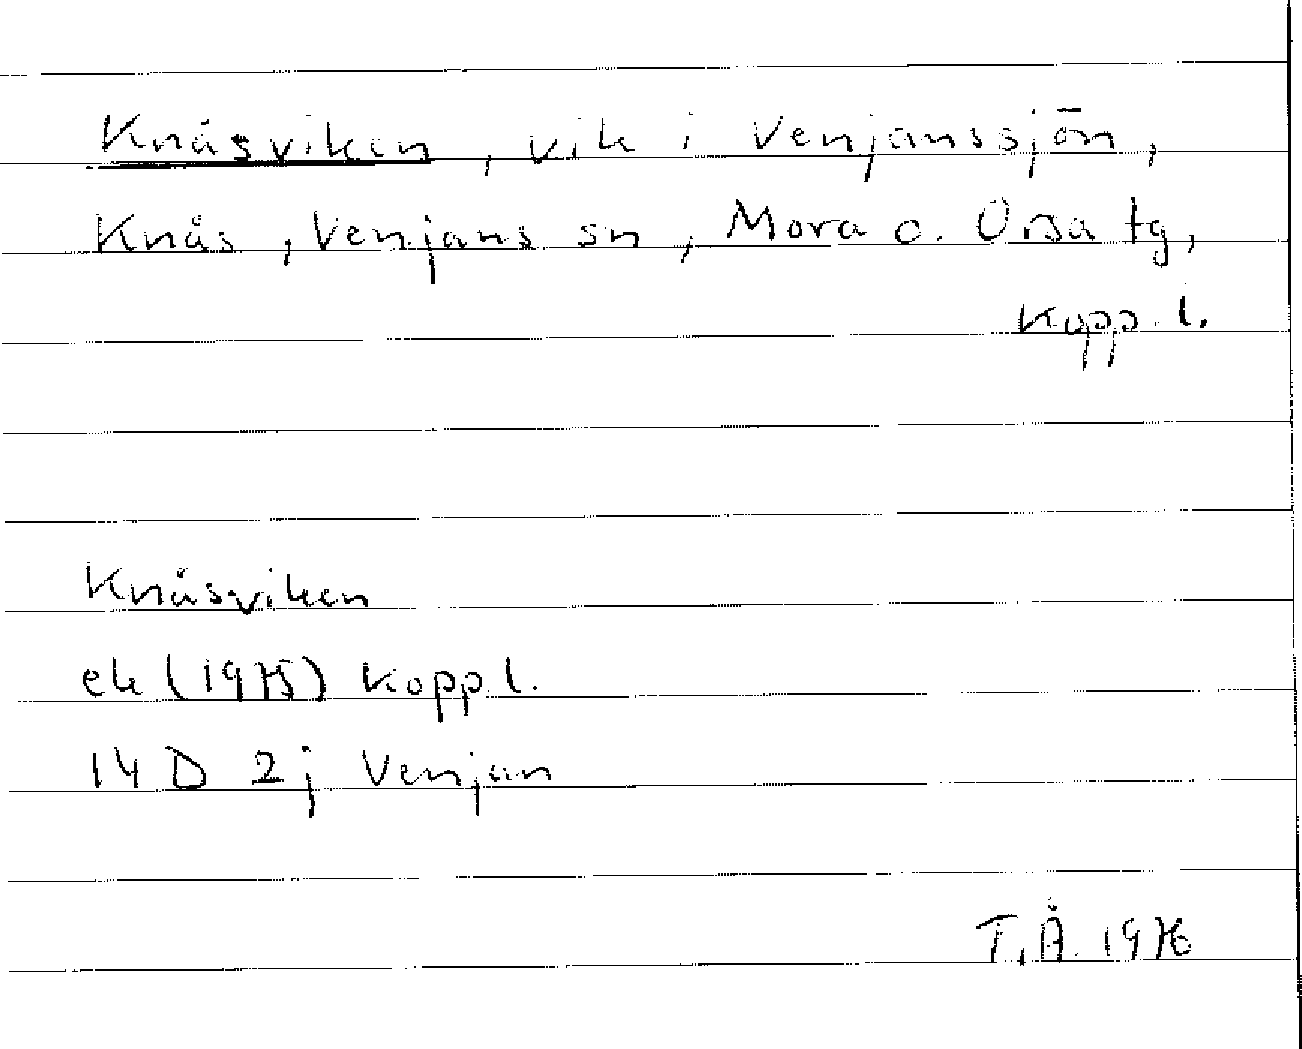 Knåsviken, vik i Venjanssjön,
Knås, Venjans sn, Mora o. Orsa tg,
Kopp. l.
Knåsviken
ek (1975) Kopp l.
14 D 2j Venjan
T.Å. 1976